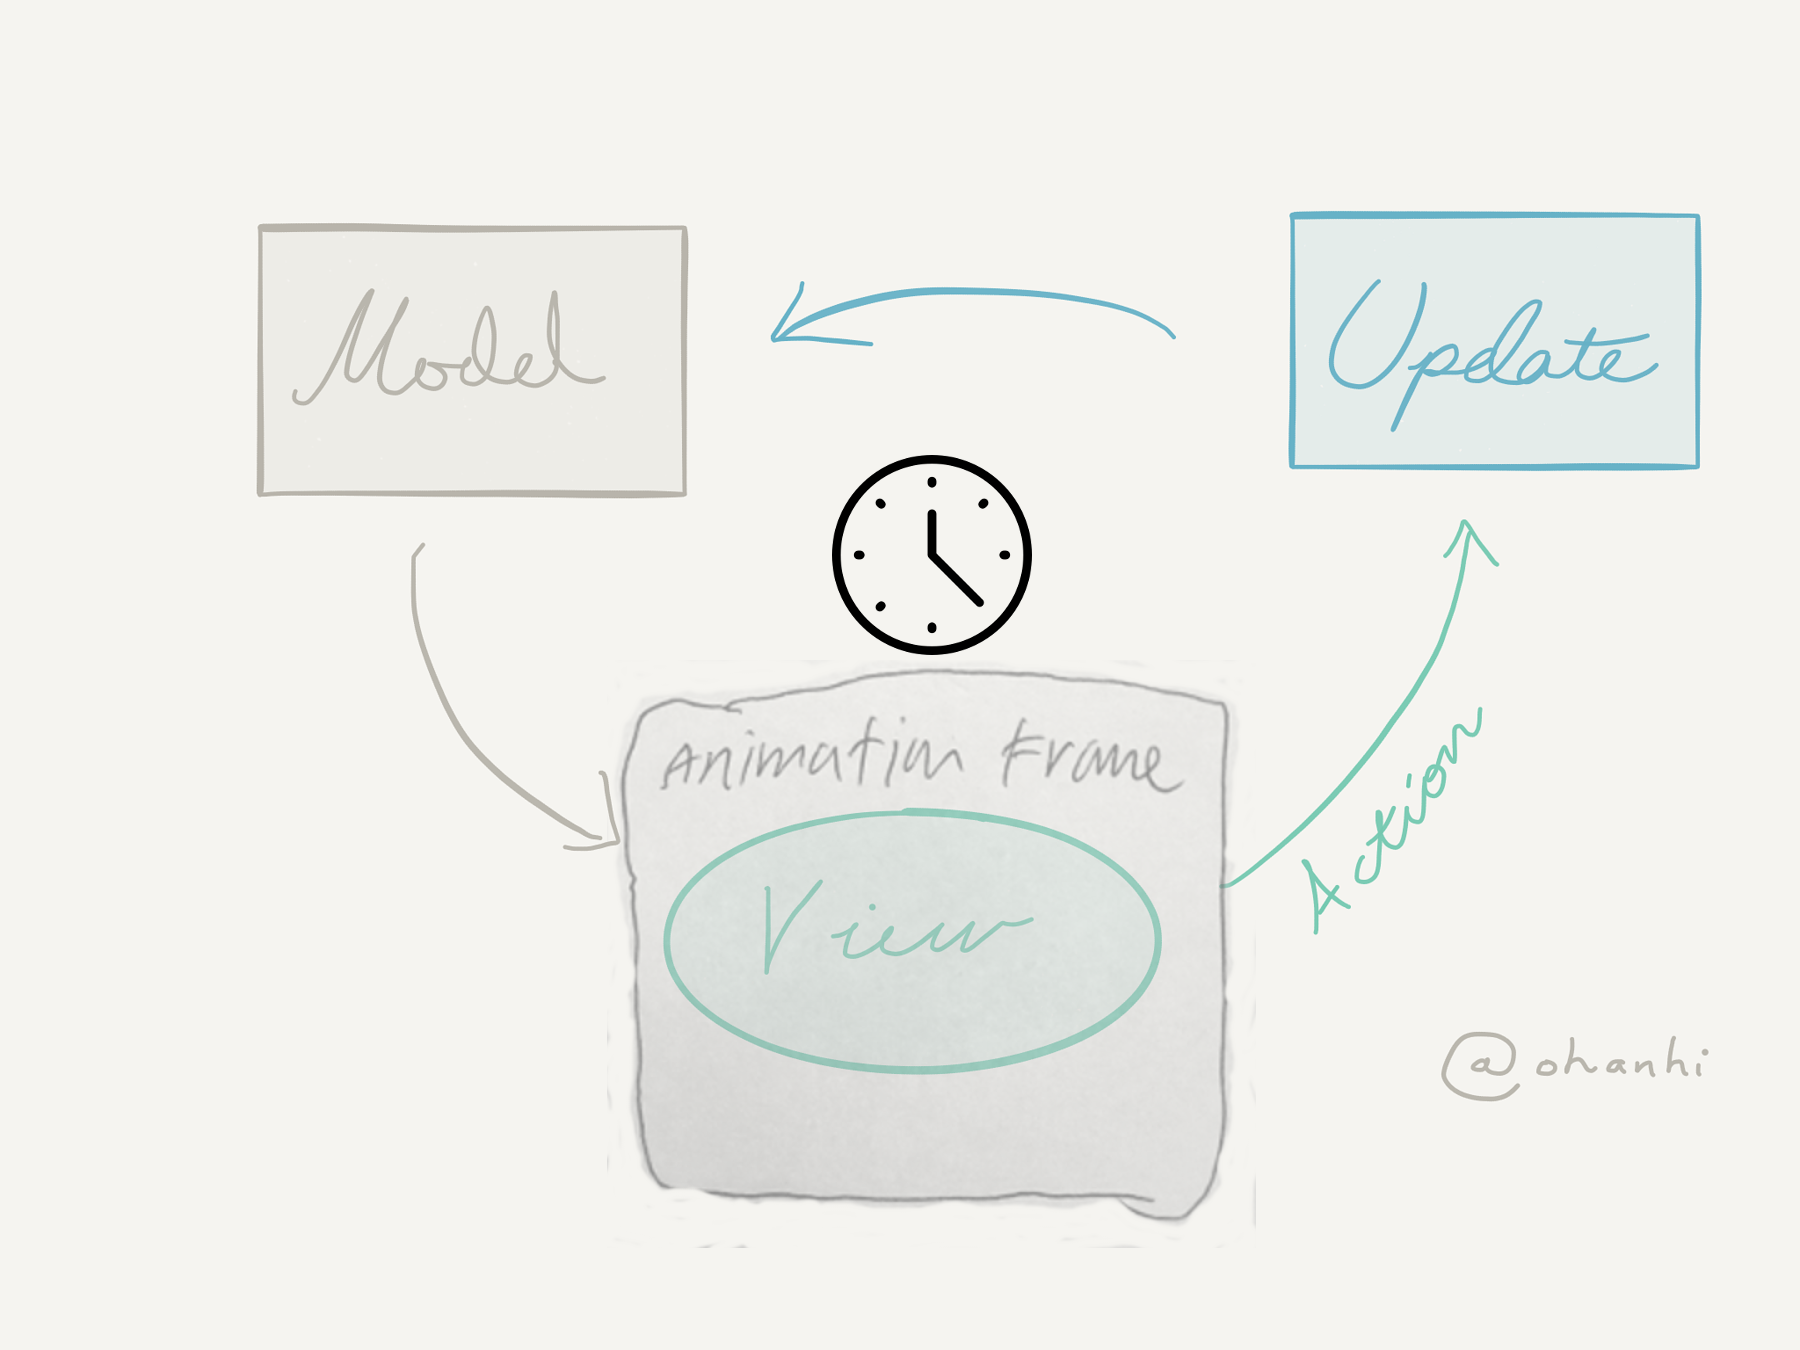 Model
Update
Animation Frame
View
Action
@ohanhi